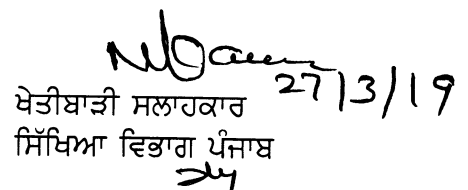 27/3/19
ਖੇਤੀਬਾੜੀ ਸਲਾਹਕਾਰ
ਸਿੱਖਿਆ ਵਿਭਾਗ ਪੰਜਾਬ